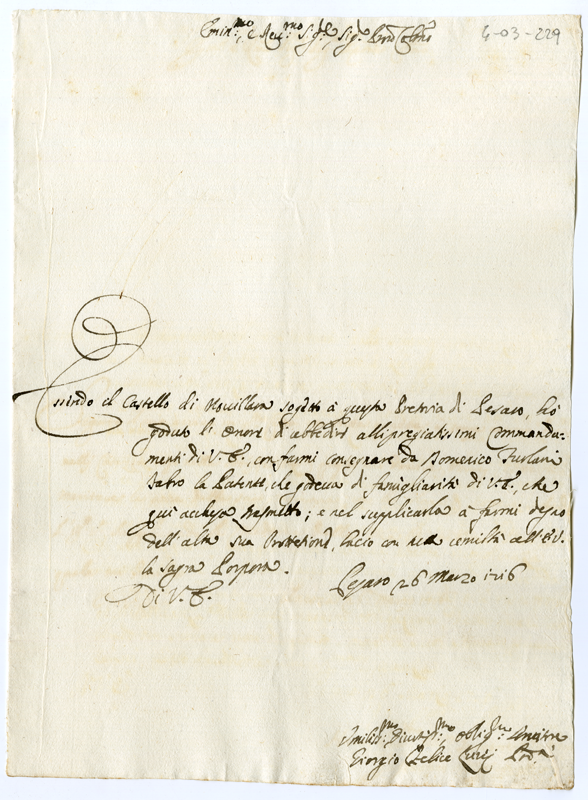 Emin.mo, e Rev.mo Sig.r, Sig.r Pron Colmo
4-03-229
Essendo il Castello di Novillara sogetto à questa Pretoria di Pesaro, hò
goduto l'honore d'obbedire alli pregiatissimi Commanda-
menti di V. E., con farmi consegnare da Domenico Furlani
Fabro la Patente, che godeva di famigliarità di V. E., che
qui acchiusa trasmetto; e nel supplicarla à farmi degno
dell'alta sua Protettione, bacio con umiltà all'E. V.
la Sagra Porpora.
Di V. E.
Pesaro 26 Marzo 1716
Umiliss.mo Divotiss.mo Oblig.mo Servitore
Giorgio Felice